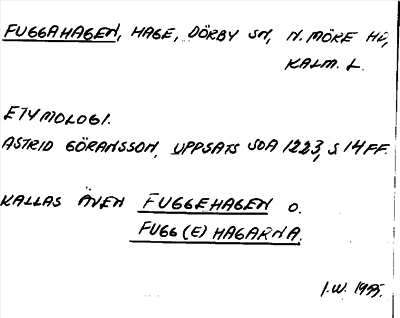 FUGGAHAGEN, HAGE, DÖRBY SN, N. MÖRE HD,
KALM. L.
ETYMOLOGI.
ASTRID GÖRANSSON, UPPSATS SOA 1223, S 14 FF.
KALLAS ÄVEN FUGGEHAGEN O.
FUGG(E)HAGARNA.
I.W. 1955.